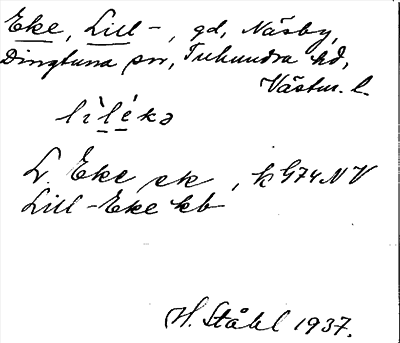 Eke, Lill-, gd, Näsby,
Dingtuna sn, Tuhundra hd,
Västm. l.
lìlékə
L. Eke ek, k G74 NV
Lill-Eke kb
H. Ståhl 1937.